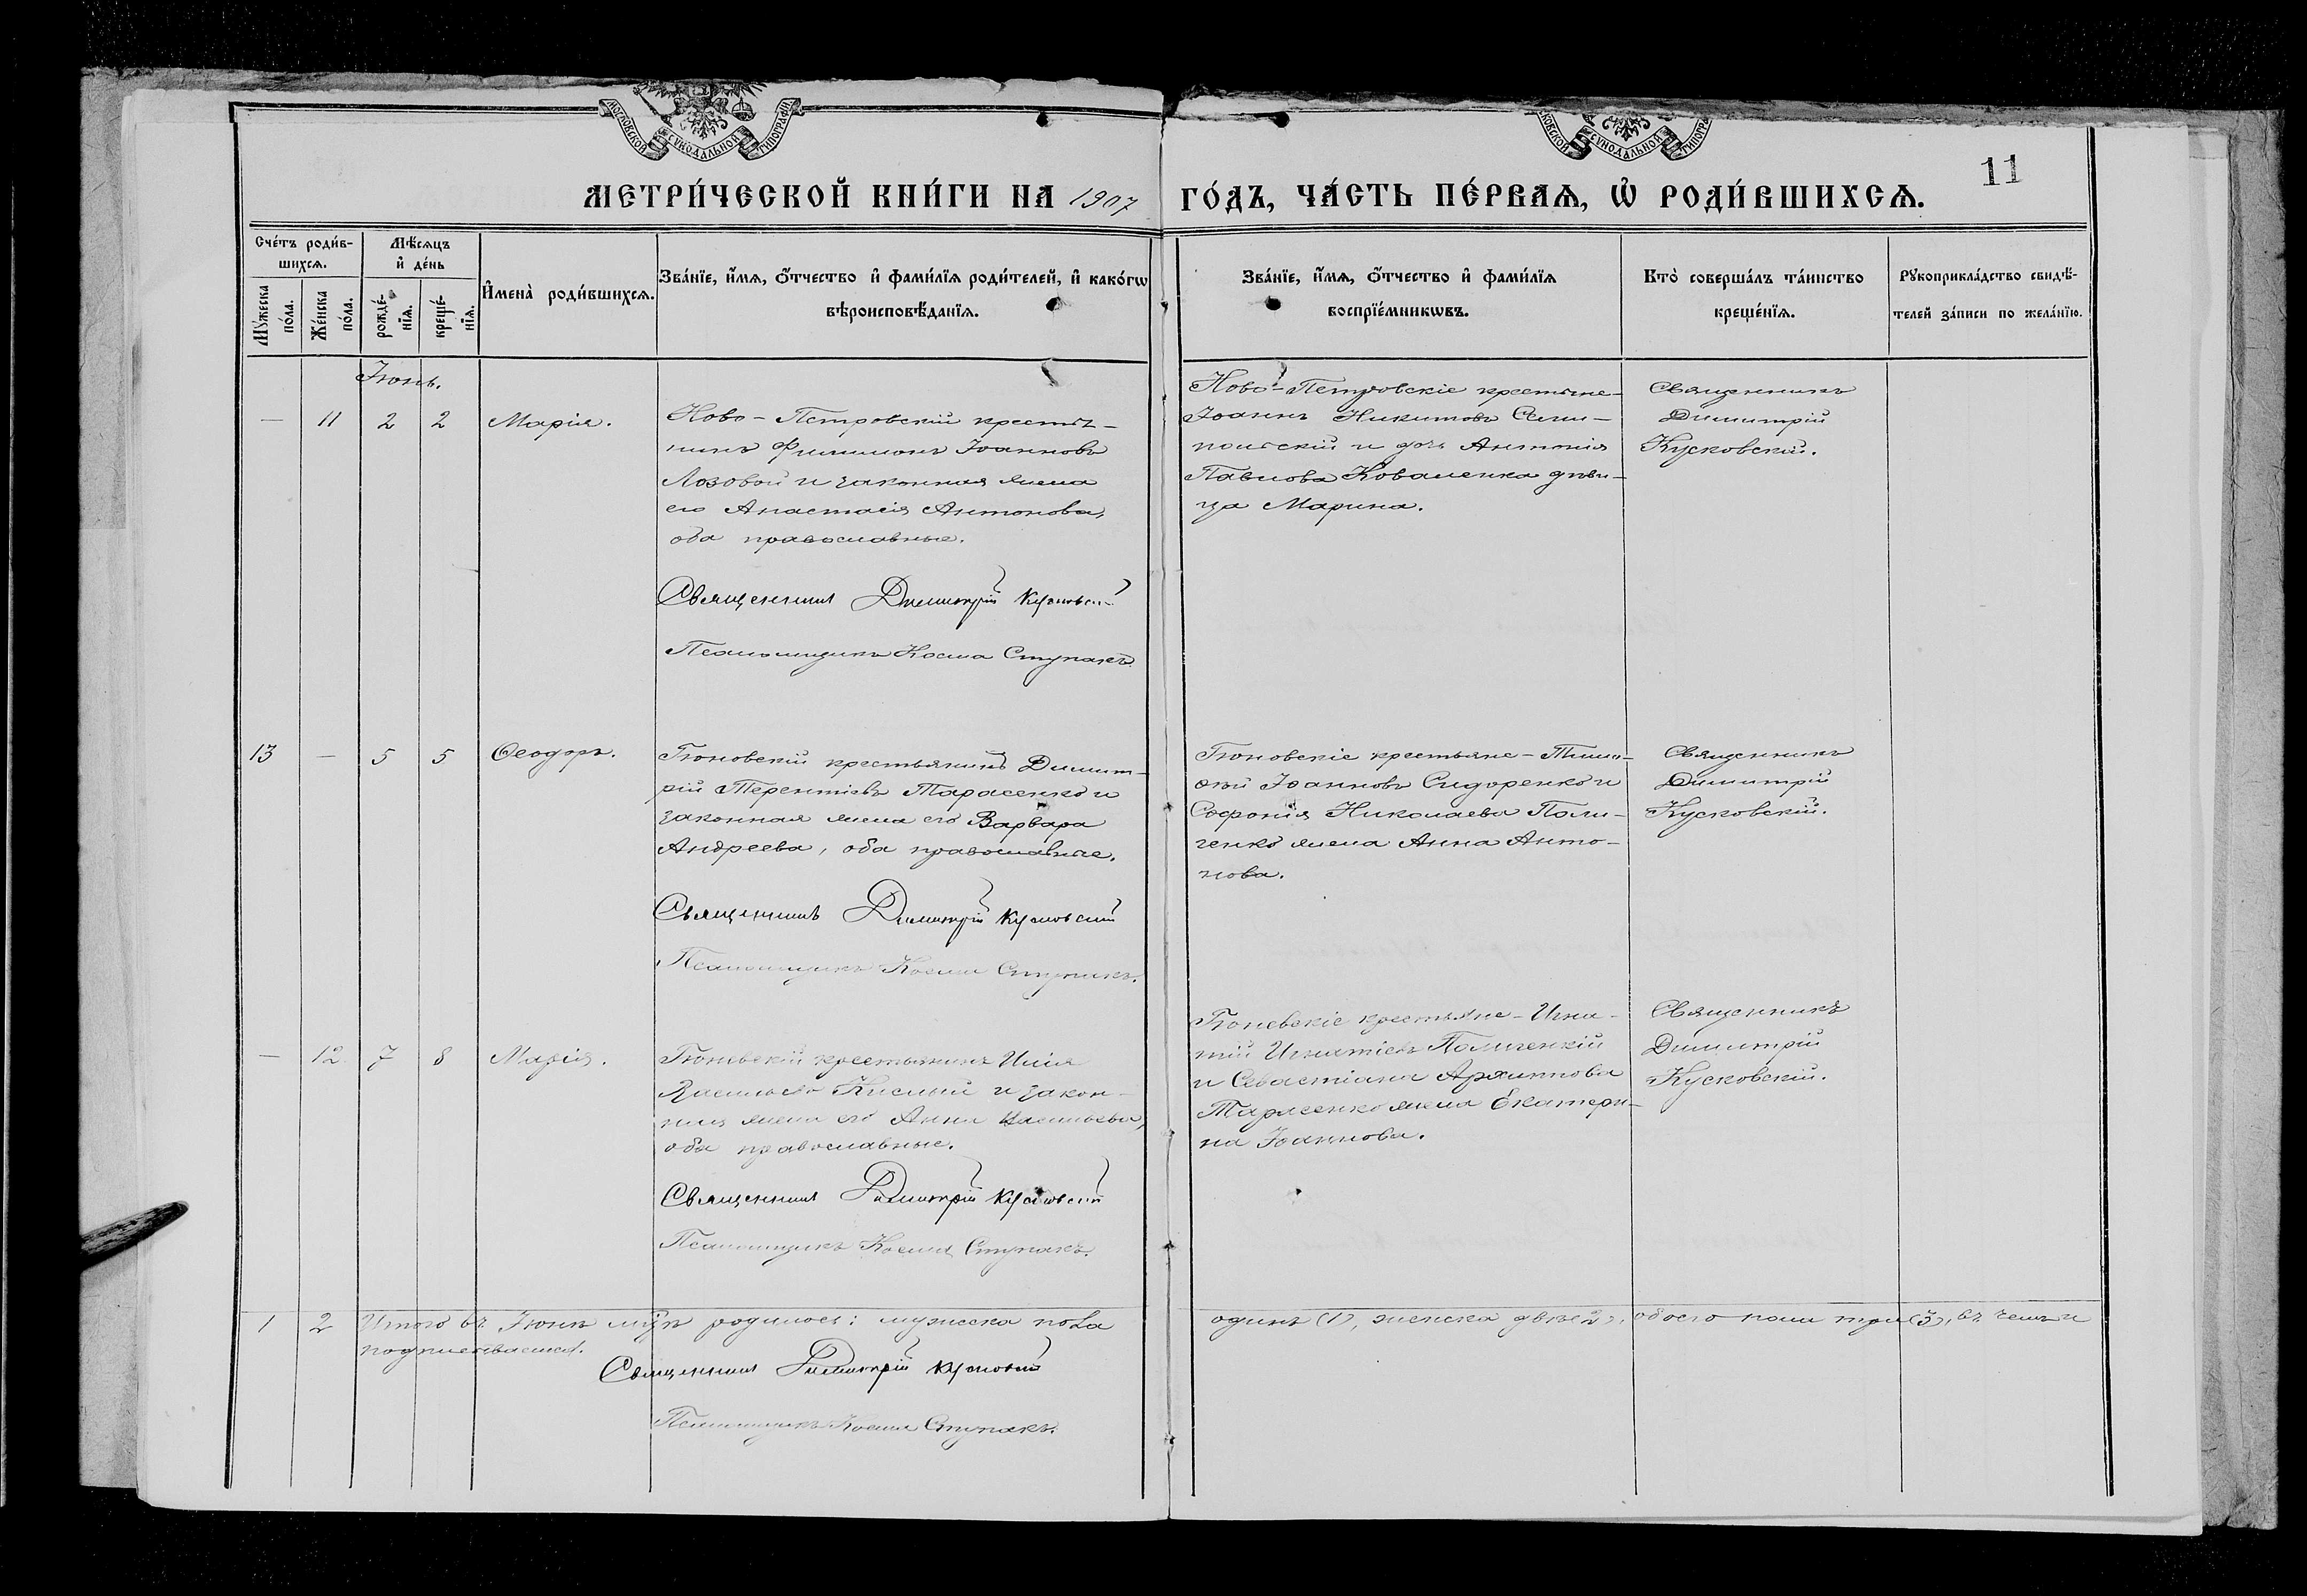 МОСКОВСКОЙ СѴНОДАЛЬНОЙ ТИПОГРАФІИ
СѴНОДАЛЬНОЙ
11
МЕТРИ́ЧЕСКОЙ КНИ́ГИ НА 1907 ГО́ДЪ, ЧА́СТЬ ПЕ́РВАѦ, Ѡ РОДИ́ВШИХСѦ.
Сче́тъ роди́в-
шихсѧ.
Мѣ́сѧцъ
и де́нь
Мꙋ́жеска
по́ла.
Же́нска
по́ла.
рожде́-
нїѧ.
креще́-
нїѧ.
Имена̀ роди́вшихсѧ.
Зва́нїе, и́мѧ, ѻ́тчество и фами́лїѧ роди́телей, и како́гѡ
вѣроисповѣ́данїѧ.
Зва́нїе, и́мѧ, ѻ́тчество и фами́лїѧ
воспрїе́мникѡвъ.
Кто̀ соверша́лъ та́инство
креще́нїѧ.
Рꙋкоприкла́дство свидѣ́-
телей за́писи по жела́нїю.
Іюнь.
— 11 2 2 Марія.
Ново-Петровскій крестья-
нинъ Филимонъ Іоанновъ
Лозовой и законная жена
его Анастасія Антонова,
оба православные.
Священникъ Димитрій Кусковскій
Псаломщикъ Косма Ступакъ
Ново-Петровскіе крестьяне
Іоаннъ Никитовъ
и дочь Антонія
Павлова Коваленка дѣви-
ца Марина.
Священникъ
Димитрій
Кусковскій.
13 — 5 5 Ѳеодоръ.
Гюновскій крестьянинъ Димит-
рій Терентіевъ Тарасенко и
законная жена его Варвара
Андреева, оба православные.
Священникъ Димитрій Кусковскій
Псаломщикъ Косма Ступакъ.
Гюновскіе крестьяне - Тимо-
ѳей Іоанновъ Сидоренко и
Софонія Николаева Поли-
ченко жена Анна Анто-
нова.
Священникъ
Димитрій
Кусковскій.
— 12 7 8 Марія.
Гюневскій крестьянинъ Илія
Васильевъ Кислый и закон-
ная жена его Анна Васильева,
оба православные.
Священникъ Димитрій Кусковскій
Псаломщикъ Косма Ступакъ.
Гюневскіе крестьяне - Игна-
тій Игнатіевъ Поличенкій
и Севастіана Архиппова
Тарасенко жена Екатери-
на Іоаннова.
Священникъ
Димитрій
Кусковскій.
1 2 Итого въ Іюнѣ мцѣ родилось: мужеска пола одинъ (1), женска двѣ (2), обоего пола три (3), въ чемъ и
подписываемся.
Священникъ Димитрій Кусковскій
Псаломщикъ Косма Ступакъ.